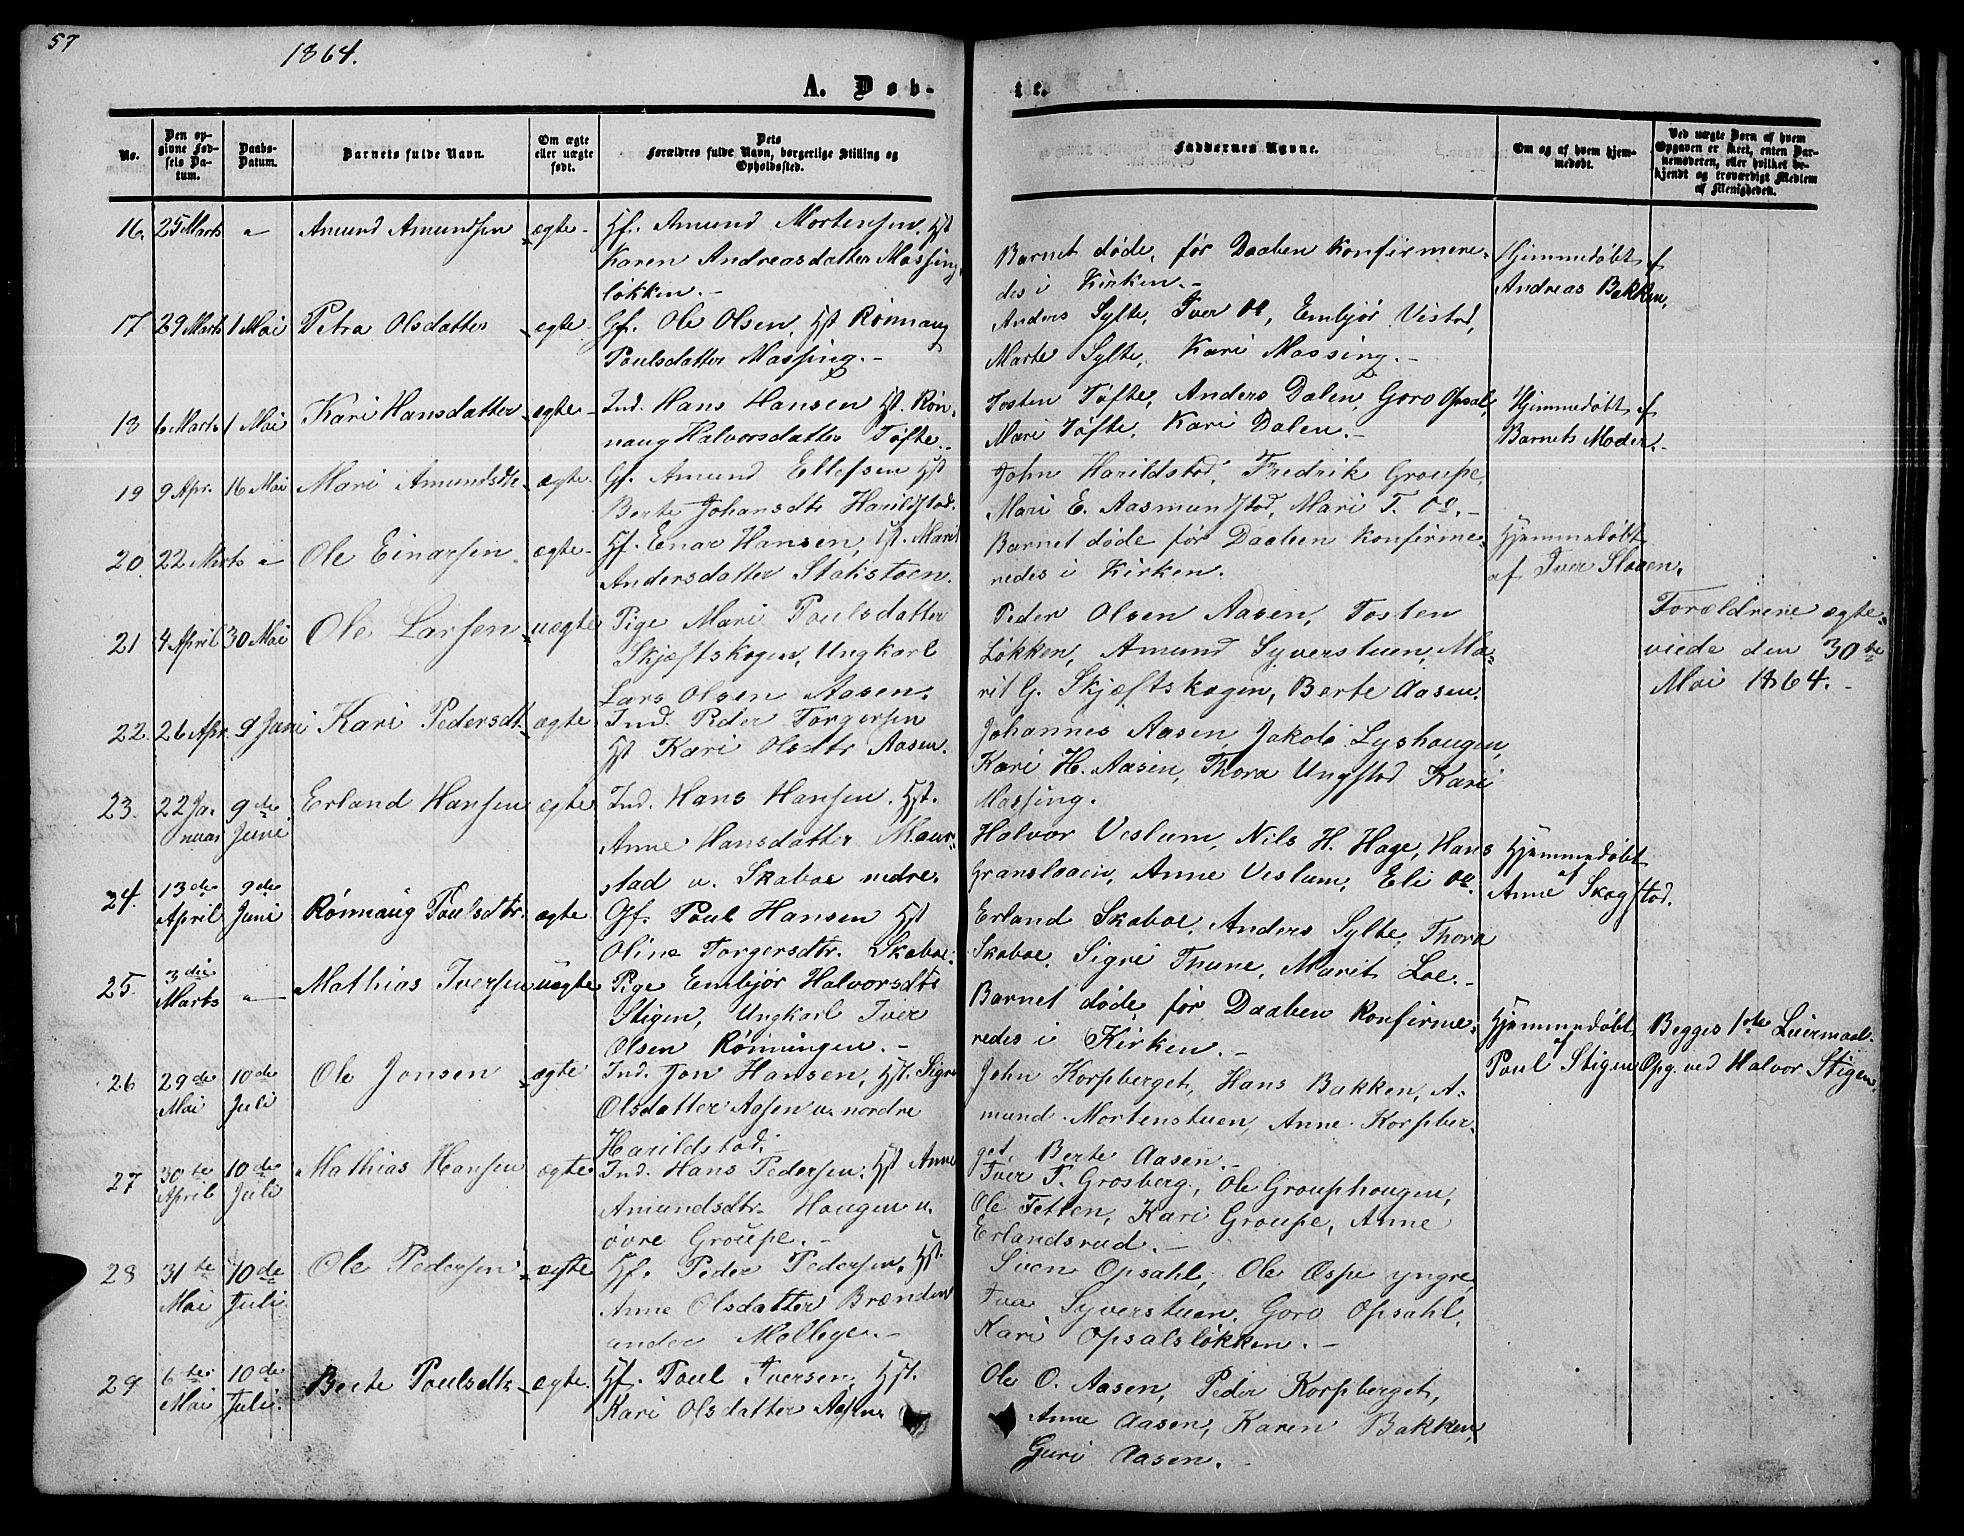 57
1864.
A. Døb-
No.
Den op-
givne Fød-
sels Da-
tum.
Daabs-
Datum.
Barnets fulde Navn.
Om ægte
eller uægte
født.
Dets
Forældres fulde Navn, borgerlige Stilling og
Opholdssted.
16. 25 Marts " Amund Amundsen ægte Gf. Amund Mortensen, Hst
Karen Andreasdatter Massing-
løkken.
17 29 Marts 1 Mai Petra Olsdatter ægte Gf. Ole Olsen, Hst Rønnaug
Poulsdatter Massing.
18 6 Marts 1 Mai Kari Hansdatter ægte Ind. Hans Hansen Hst. Røn-
naug Halvorsdatter Tofte.
19 9 Apr. 16 Mai Mari Amundsdtr ægte Gf. Amund Ellefsen Hst
Berte Johansdtr Harildstad.
20 22 Marts " Ole Einarsen ægte Hf. Enar Hansen, Hst. Marit
Andersdatter Stakstoen.
21 4 April 30 Mai Ole Larsen uægte Pige Mari Poulsdatter
Skjæftskogen, Ungkarl
Lars Olsen Aasen.
22. 26 Apr. 9 Juni Kari Pedersdt. ægte Ind. Peder Torgersen
Hst Kari Olsdtr Aasen.
23. 22 Ja- nuar 9de Juni Erland Hansen ægte Ind. Hans Hansen. Hst.
Anne Hansdatter Maur-
stad u. Skaboe nedre.
24. 13de April 9de Juni Rønnaug Poulsdtr. ægte Gf. Poul Hansen Hst
Oline Torgersdtr. Skaboe.
25. 3die Marts " Mathias Iversen uægte Pige Embjør Halvorsdtr
Stigen, Ungkarl Iver
Olsen Rønningen.
26 29de Mai 10de Juli Ole Jonsen ægte Ind. Jon Hansen, Hst. Sigri
Olsdatter Aasen u. nordre
Harildstad.
27 30te April 10de Juli Mathias Hansen ægte Ind. Hans Pedersen. Hst Anne
Amundsdtr. Haugen u.
övre Groupe.
28 31te Mai 10de Juli Ole Pedersen ægte Hf. Peder Pedersen, Hst.
Anne Olsdatter Brænden
under Melbye.
29 6te Mai 10de Juli. Berte Poulsdtr ægte Hf. Poul Iversen, Hst.
Kari Olsdatter Aasen
te.
Faddernes Navne.
Om og af hvem hjem-
medøbt.
Ved uægte Børn af hvem
Opgaven er skeet, enten Bar-
nemoderen, eller hvilket be-
kjendt og troværdigt Medlem
af Menigheden.
Barnet døde, før Daaben konfirmere-
des i Kirken.
Hjemmedøbt af
Andreas Bakken.
Anders Sylte, Iver Oe, Embjør Vistad,
Marte Sylte, Kari Massing.
Tosten Tofte, Anders Dalen, Goro Opsal,
Mari Tofte, Kari Dalen.
Hjemmedøbt af
Barnets Moder.
John Harildstad, Fredrik Groupe,
Mari E. Aasmundstad, Mari T. Oe.
Barnet døde før Daaben konfirme-
redes i Kirken.
Hjemmedøbt
af Iver Slaaen.
Peder Olsen Aasen, Tosten
Løkken, Amund Syverstuen, Ma-
rit G. Skjæftskogen, Berte Aasen.
Forældrene ægte-
viede den 30te
Mai 1864.
Johannes Aasen, Jakob Lyshaugen,
Kari H. Aasen, Thora Ungstad Kari
Massing.
Halvor Veslum, Nils H. Hage, Hans
Granslaaen, Anne Veslum, Eli Oe.
Hjemmedøbt
af
Anne Skagstad.
Erland Skaboe, Anders Sylte, Thora
Skaboe, Sigri Thune, Marit Loe.
Barnet døde, før Daaben konfirme-
redes i Kirken.
Hjemmedøbt
af
Poul Stigen
Begges 1ste Leiermaal.
Opg. ved Halvor Stigen.
John Korpberget, Hans Bakken, A-
mund Mortenstuen, Anne Korpber-
get, Berte Aasen.
Iver P. Grosberg, Ole Grouphougen,
Ole Tetten, Kari Groupe, Anne
Erlandsrud.
Sven Opsahl, Ole Espe yngre,
Syverstuen, Goro Opsahl,
Kari Opsalsløkken.
Ole O. Aasen, Peder Korpberget,
Anne Aasen, Karen Bakken,
Guri Aasen.